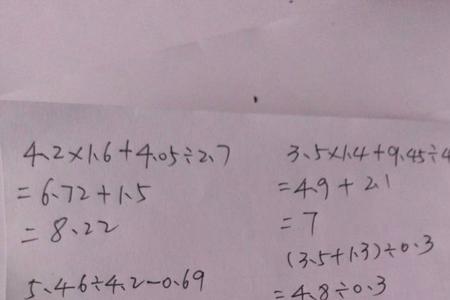 4.2×1.6+4.05÷2.7
=6.72+1.5
=8.22
5.46÷4.2-0.69
3.5×1.4+9.45÷4
=4.9+2.1
=7
(3.5+1.3)÷0.3
=4.8÷0.3